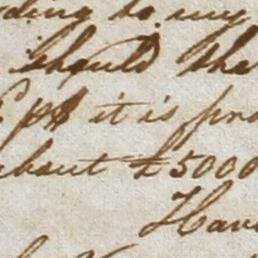 ding to my
should the
it is pro
about £5000
Hav